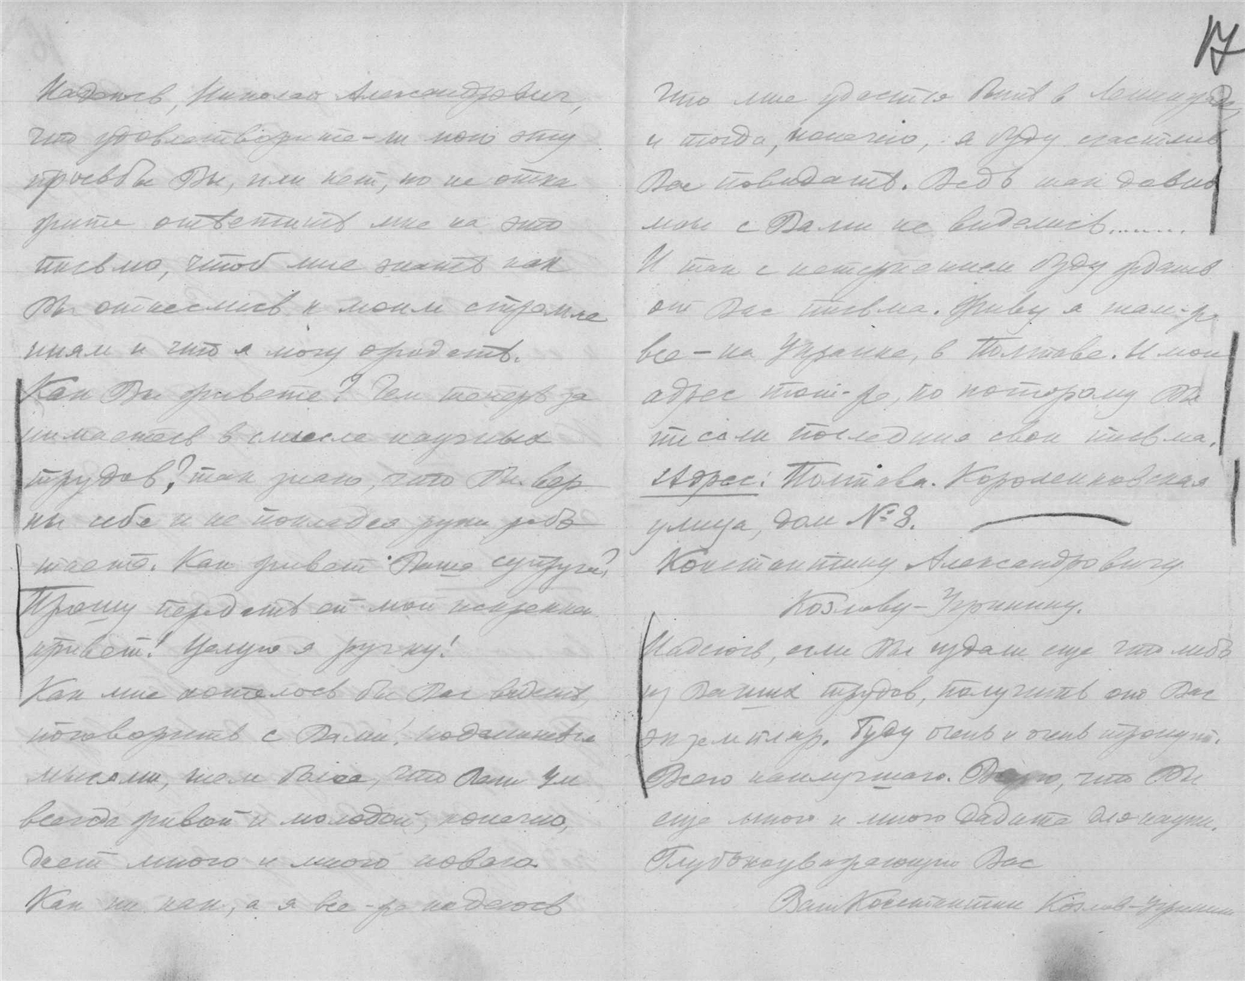 17
Надеюсь, Николай Александрович,
что удовлетворите-ли мою эту
просьбу Вы, или нет, но не отка
жите ответить мне на это
письмо, чтоб мне знать как
Вы отнеслись к моим стремле
ниям и что я могу ожидать.
Как Вы живете? Чем теперь за
нимаетесь в смысле научных
трудов? так знаю, что Вы вер
ны себе и не покладая руки рабо
таете. Как живет Ваша супруга?
Прошу передать ей мой искренний
привет! Целую я ручку!
Как мне хотелось бы Вас видеть,
поговорить с Вами, поделиться
мыслями, тем более, что Ваш ум
всегда живой и молодой, конечно,
даст много и много нового.
Как ни как, а я все-же надеюсь
что мне удастся быть в Ленинграде,
и тогда, конечно, я буду счастлив
Вас повидать. Ведь так давно
мы с Вами не виделись.......
И так с нетерпением буду ждать
от Вас письма. Живу я там-же
все-на Украине, в Полтаве. И мой
адрес тот-же, по которому Вы
писали последние свои письма.
Адрес: Полтава. Короленковская
улица, дом № 8.
Константину Александровичу
Козлову-Угринину.
Надеюсь, если Вы издали еще что либо
из Ваших трудов, получить от Вас
экземпляр. Буду очень и очень тронут.
Всего наилучшего. Верю, что Вы
еще много и много дадите для науки.
Глубокоуважающий Вас
Ваш Константин Козлов-Угринин